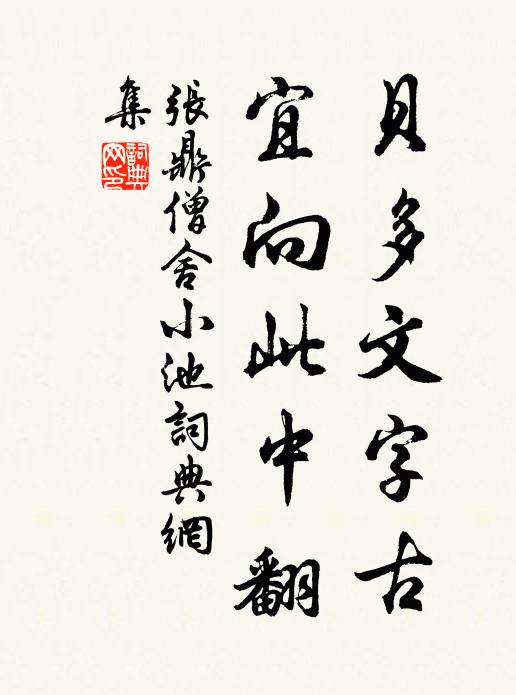 貝多文字古
宜向此中翻
張鼎僧舍小池詞典網
集
詞典
网印